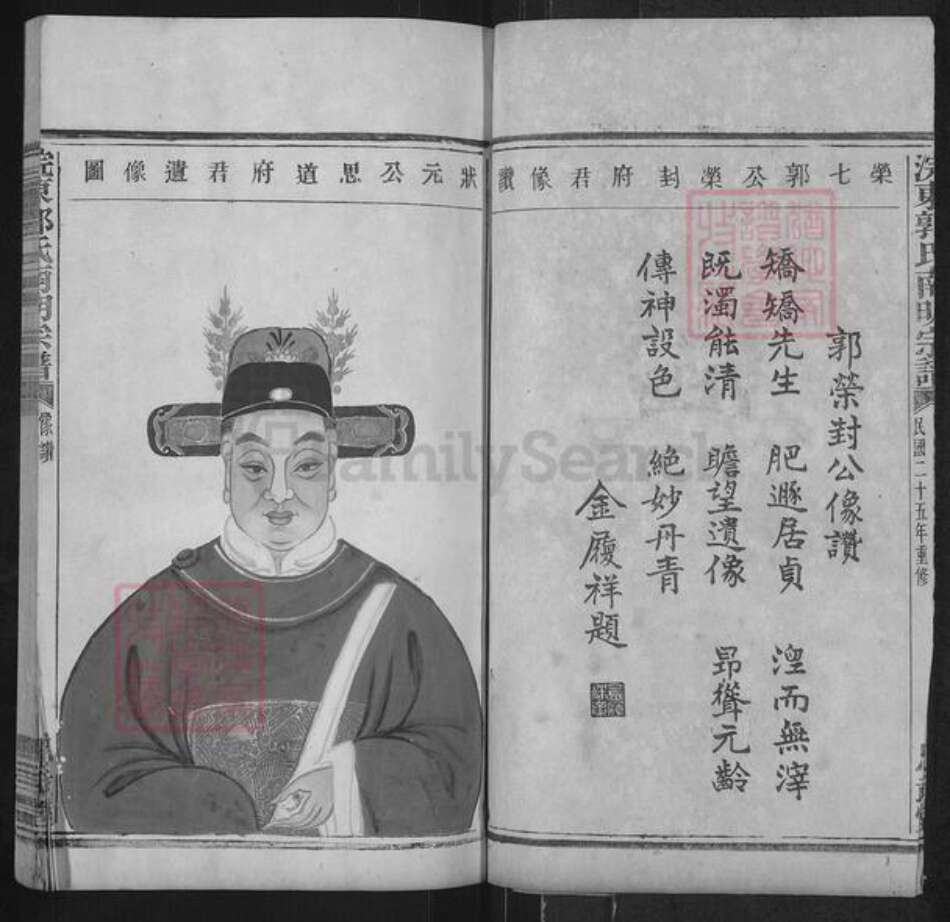 榮七郭公榮封府君像讚
郭榮封公像讚
矯矯先生 肥遯居貞 涅而無滓
既濁能清 瞻望遺像 昻聳元齡
傳神設色 絶妙丹青
金履祥題
狀元公思道府君遺像圖
浣東郭氏南明宗譜
民國二十五年重修
像讚
FamilySearch